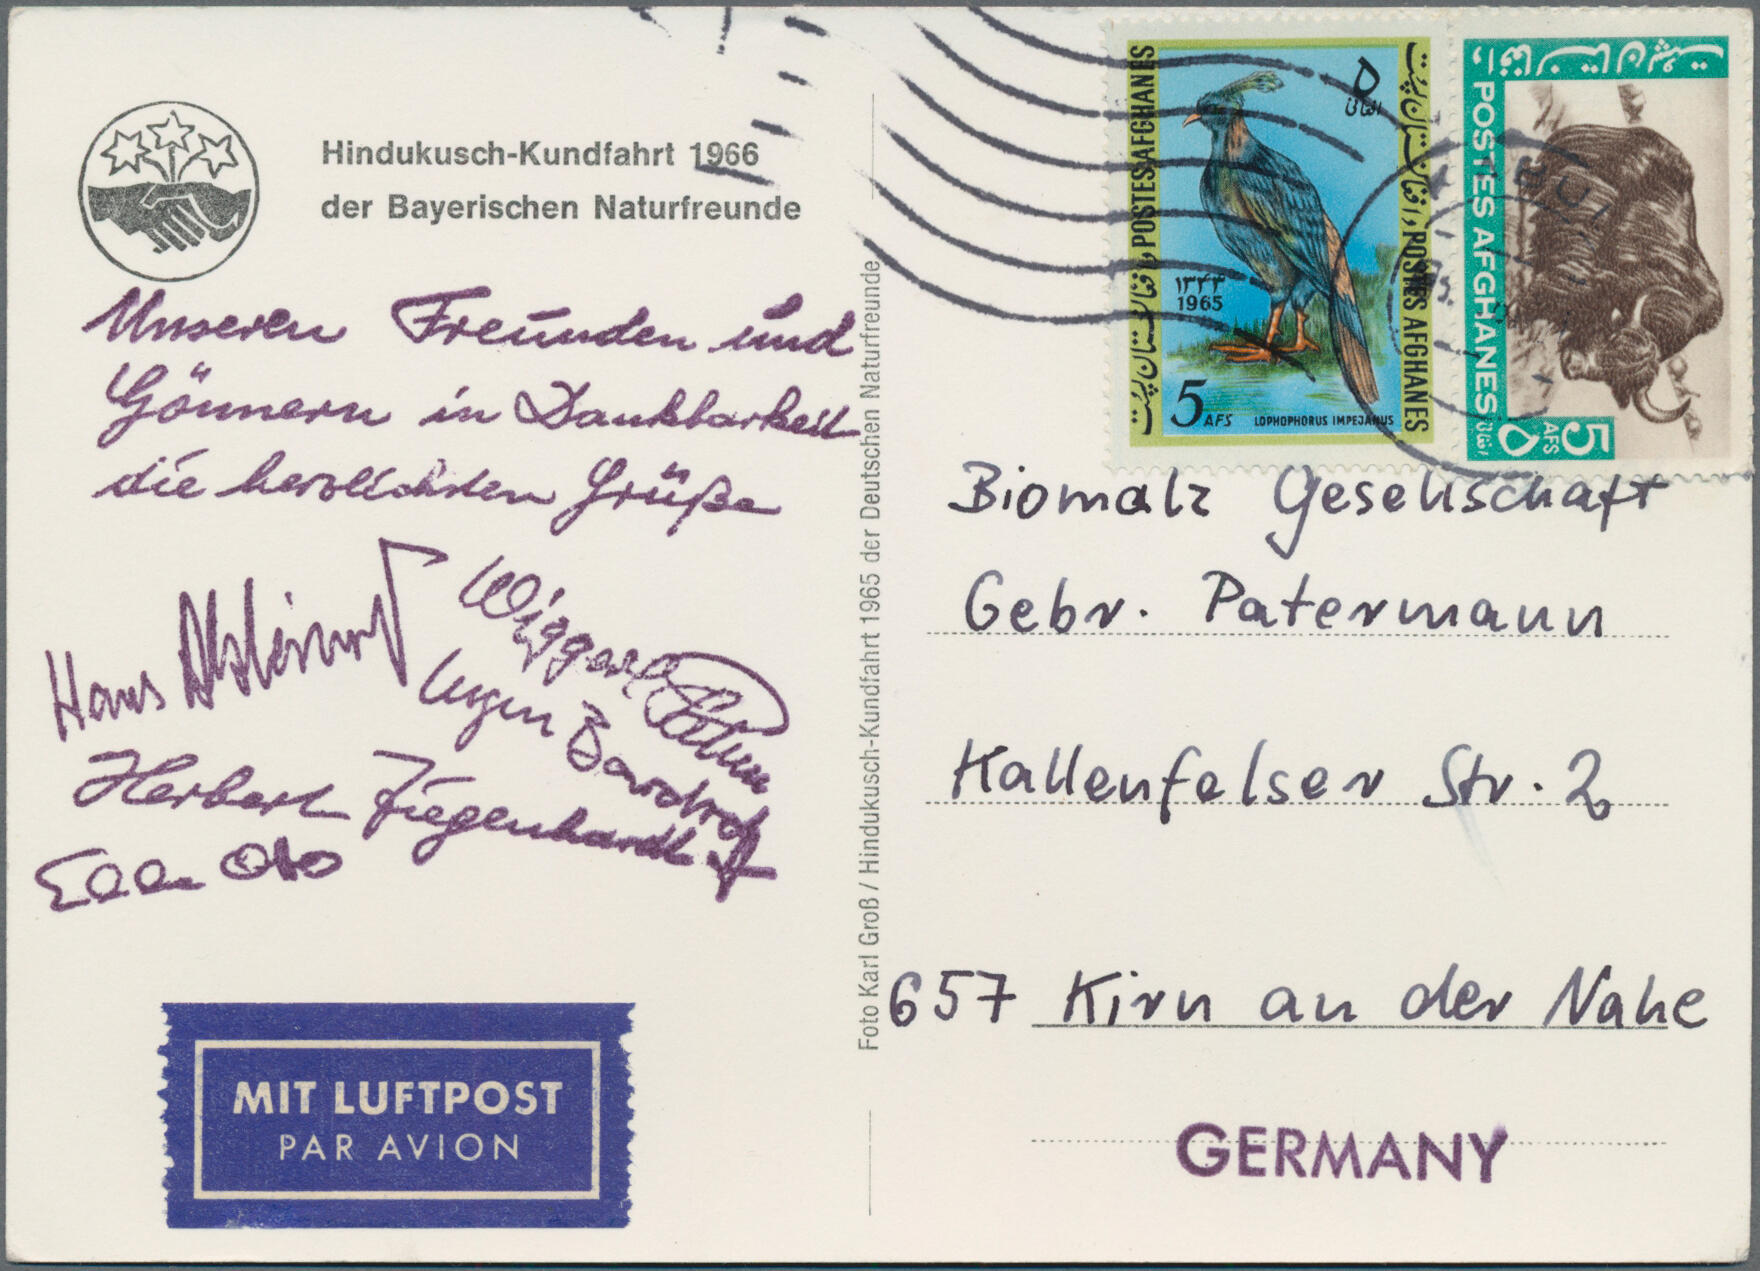 Hindukusch-Kundfahrt 1966
der Bayerischen Naturfreunde
Unseren Freunden und
Gönnern in Dankbarkeit
die herzlichsten Grüße
Hans
Wiggerl
Eugen Bardroff
Herbert Ziegenhardt
Otto
MIT LUFTPOST
PAR AVION
Foto Karl Groß / Hindukusch-Kundfahrt 1965 der Deutschen Naturfreunde
POSTES AFGHANES
د افغانستان پست
د افغانستان پست
POSTES AFGHANES
۵
افغانی
۱۳۴۴
1965
5 AFS
LOPHOPHORUS IMPEJANUS
د افغانستان پست
POSTES AFGHANES
افغانی
۵
5
AFS
Biomalz Gesellschaft
Gebr. Patermann
Kallenfelser Str. 2
657 Kirn an der Nahe
GERMANY